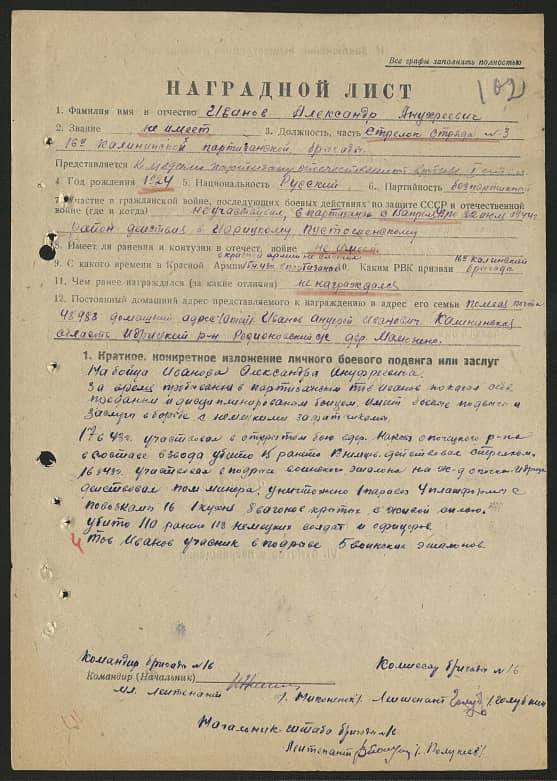 Все графы заполнять полностью
102
НАГРАДНОЙ ЛИСТ
1. Фамилия имя в отчество Иванов Александр Ануфреевич
2. Звание не имеет 3. Должность, часть Стрелок отряда № 3
16й Калининской партизанской бригады.
Представляется К медали партизану отечественной войны I ст
4. Год рождения 1924 5. Национальность Русский 6. Партийность безпартийный
7. Участие в гражданской войне, последующих боевых действиях по защите СССР и отечественной
войне (где и когда) не участвовал, в партизанах с по 1944г.
район действия в Идрицкому Пустошенскому
8. Имеет ли ранения и контузии в отечест, войне не имеет
9. С какого времени в Красной Армии 10. Каким РВК призван 16й Калинской бригада
11. Чем ранее награждался (за какие отличия) не награждался
12. Постоянный домашний адрес представляемого к награждению и адрес его семьи полевая почта
48983 домашний адрес Иванов Иванович Калининская
область Идрицкий р-н Родионовский с/с дер
1. Краткое, конкретное изложение личного боевого подвига или заслуг
На бойца Иванова Александра Ануфреевича.
За время пребывания в партизанах тов Иванов показал себя
и дисциплинированным бойцом. Имеет боевые подвиги и
заслуги в борьбе с немецкими захватчиками.
участвовал в открытом бою дер. опочецкого р-на
в составе взвода убито 15 ранено 8 действовал стрелком.
участвовал в подрыве воинского эшелона на ж-д опочка Идрица
действовал пом минера, уничтожено 1 паравоз 4 платформы с
повозками 16 1 кухня 8 вагонов крытых с живой силою.
убито 110 ранено 113 немецких солдат и офицеров.
Тов Иванов участник в подрыве 5 воинских эшалонов
Командир бригады № 16 Комиссар бригады № 16
Командир (Начальник)
мл. лейтенант Лейтенант /Голубкин
Начальник штаба бригады
Лейтенант